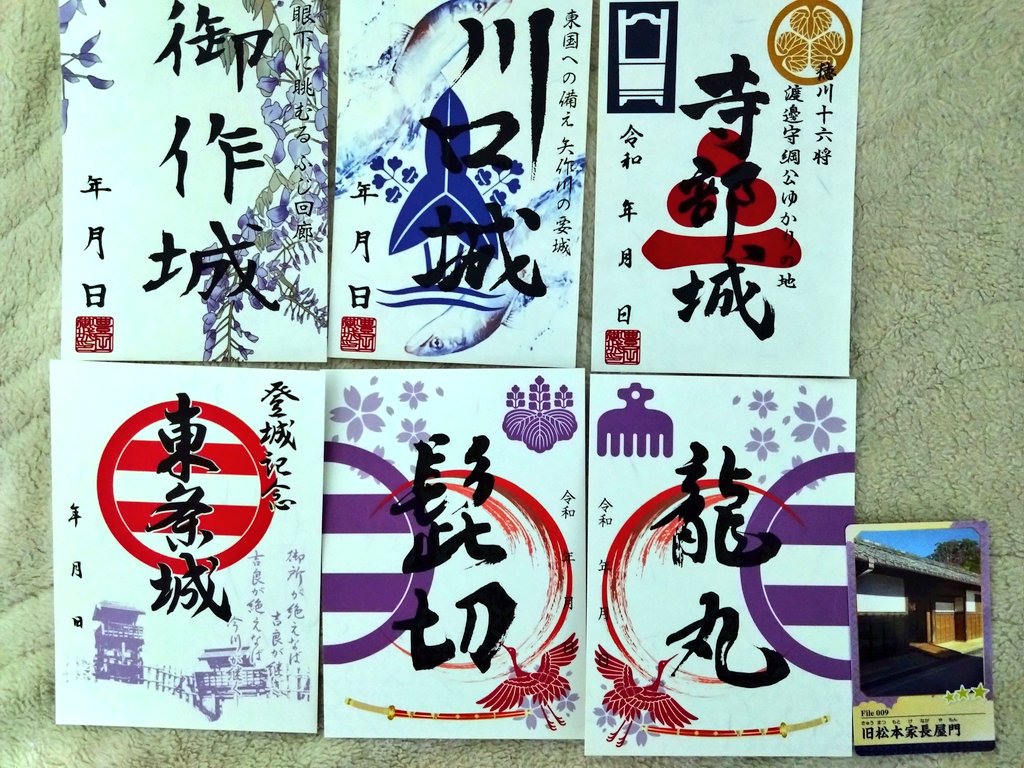 眼下に眺むるふじ回廊
御作城
年月日
東国への備え 矢作川の要城
川口城
年月日
徳川十六将
渡邊守綱公ゆかりの地
寺部城
令和 年 月 日
登城記念
東条城
年 月 日
御所が絶えなば
吉良が継
吉良が絶えなば
髭切
令和 年 月
龍丸
令和 年 月
File 009
きゅうまつもとけながやもん
旧松本家長屋門